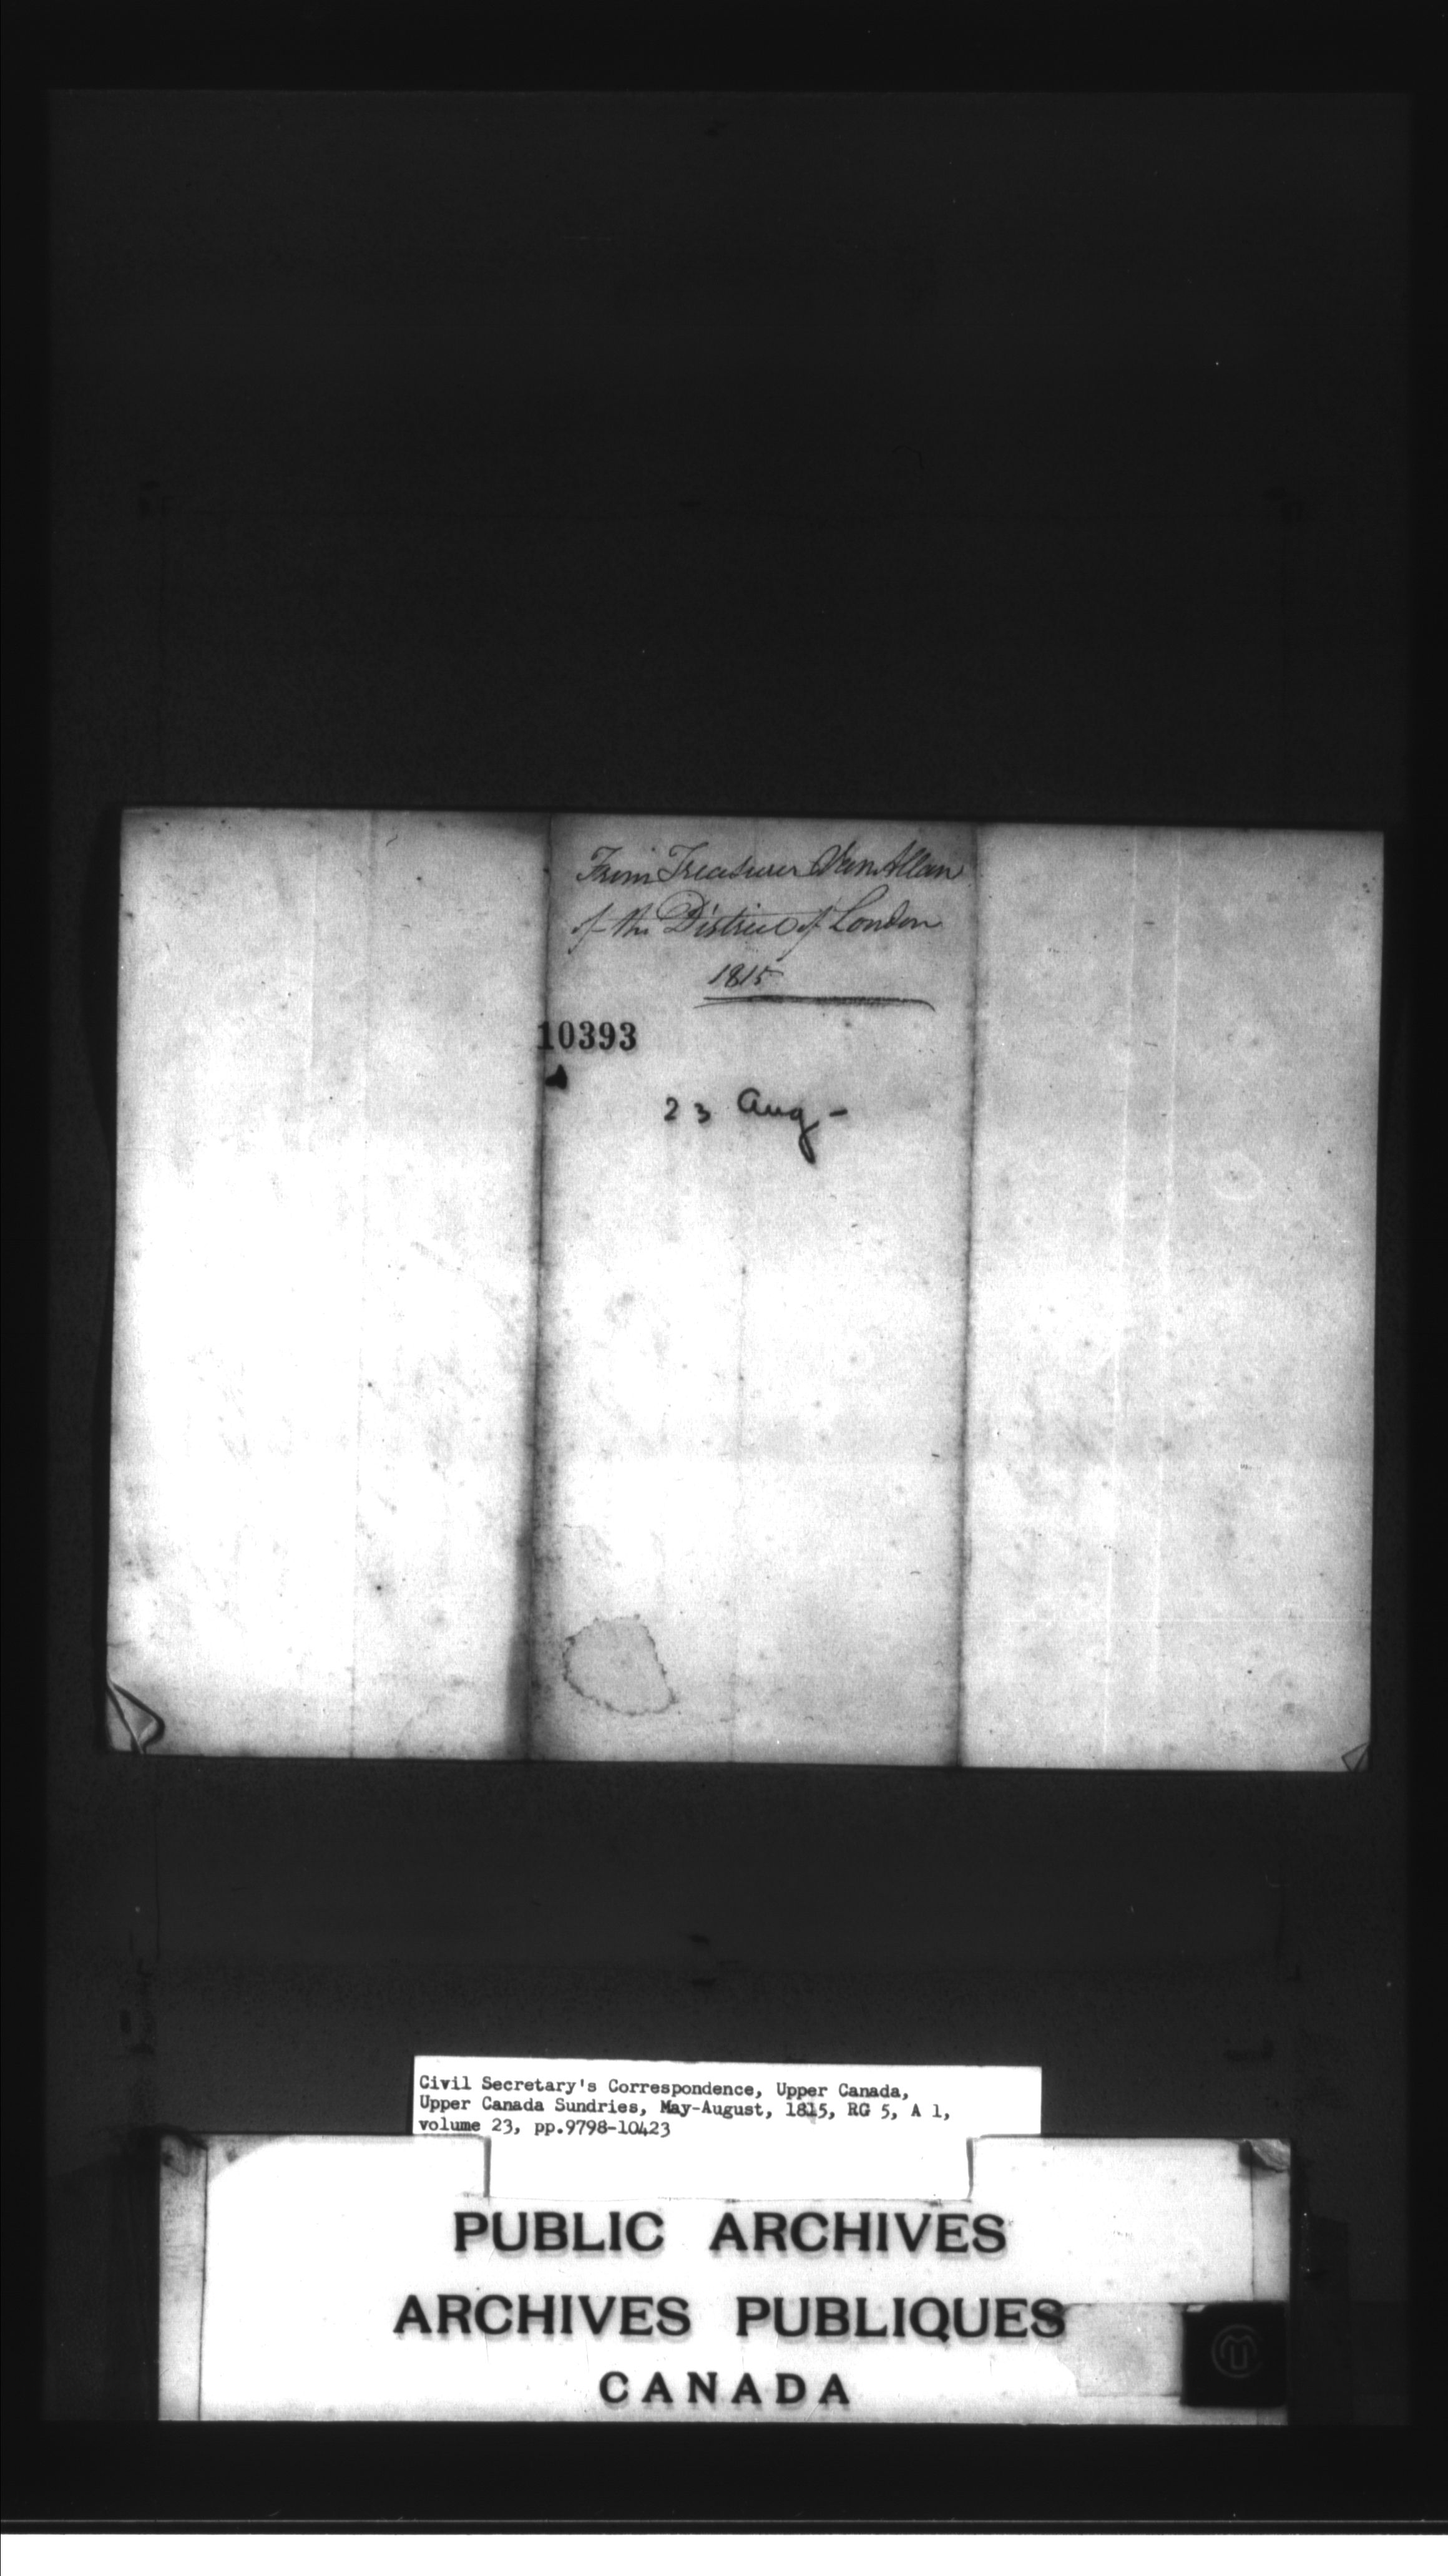 From Treasurer Van Allan
of the District of London
1815
10393
23 Aug -
Civil Secretary's Correspondence, Upper Canada,
Upper Canada Sundries, May-August, 1815, RG 5, A 1,
volume 23, pp.9798-10423
PUBLIC ARCHIVES
ARCHIVES PUBLIQUES
CANADA